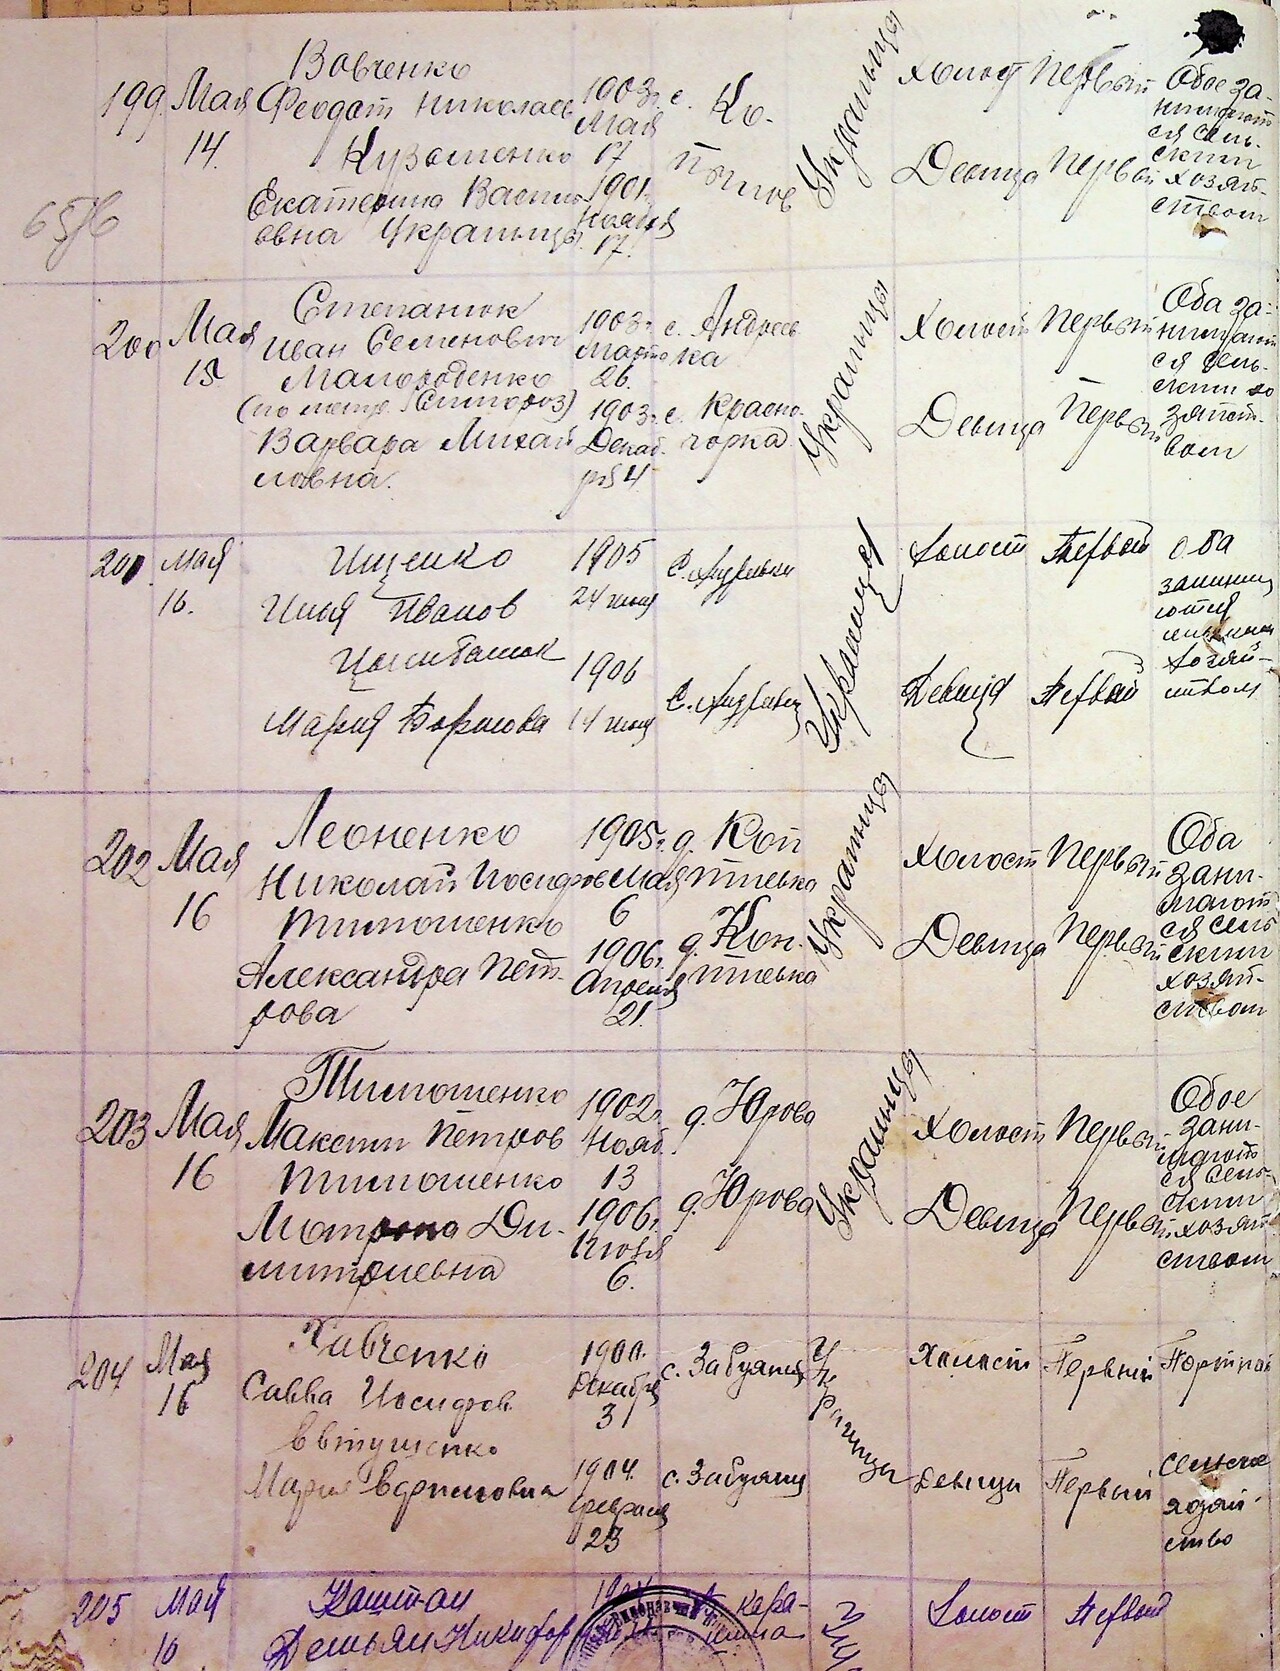 199 Мая 14.
Вовченко
Феодот Николаев
Кузьменко
Екатерина Василь-
евна Украинцы.
1903г.
Мая
17
1901г.
17.
с. Ко-
пычов
Украинцы
Холост Первый
Девица Первый
Обое за-
нимают
ся сель-
ским
хозяй-
ством
200 Мая 15
Степанюк
Иван Семенович
Малороденко
Варвара Михай
ловна.
1903г.
Марта
26.
1903г.
Декаб
ря 4
с. Андреев
ка
с. Красно-
горка
Украинцы
Холост Первый
Девица Первый
Оба за-
нимают
ся сель-
ским хо
зяйст-
вом
201 мая 16.
Ищенко
Илья Иванов
Цымбалюк
Мария Борисова
1905
24 июля
1906
14 июля
с. Андреевка
с. Андреевка
Украинцы
Холост Первый
Девица Первый
оба
занима
ются
сельским
хозяй-
ством
202 Мая 16
Леоненко
Николай Иосифов
Тимошенко
Александра Пет-
рова
1905г.
Мая
6
1906г.
Апреля
21.
д. Коп
тиевка
д. Коп-
тиевка
Украинцы
Холост Первый
Девица Первый
Оба
зани-
мают
ся сель
ским
хозяй-
ством
203 Мая 16
Тимошенко
Максим Петров
Тимошенко
Матрона Ди-
митриевна
1902г.
Нояб.
13
1906г.
6.
д. Юрова
д. Юрова
Украинцы
Холост Первый
Девица Первый
Обое
зани-
мают
ся сель-
ским
хозяй
ством
204 Мая 16
Хивченко
Савва Иосифов
Евтушенко
Мария
1900.
Декабря
3
1904.
февраля
23
с. Забуяння
с. Забуяння
Украинцы
Холост Первый
Девица Первый
Портной
сельское
хозяй-
ство
205 Мая 16
Каштан
Демьян Никифор
Кара-
шина
Холост Первый